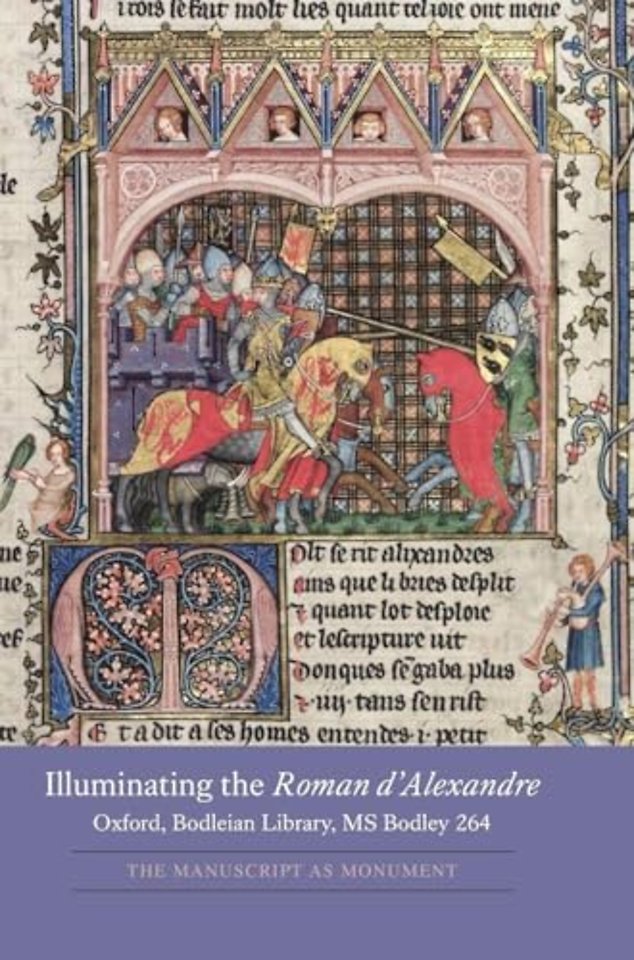 i rois se fait molt lies quant tel ioie ont mene
le
M olt se rit alixandres
ains que li bries desplit
⁊ quant lot desploie
et lescripture uit
Donques sē gaba plus
⁊ .iiij. tans sen rist
Et a dit a ses homes entendes .i. petit
Illuminating the Roman d'Alexandre
Oxford, Bodleian Library, MS Bodley 264
THE MANUSCRIPT AS MONUMENT